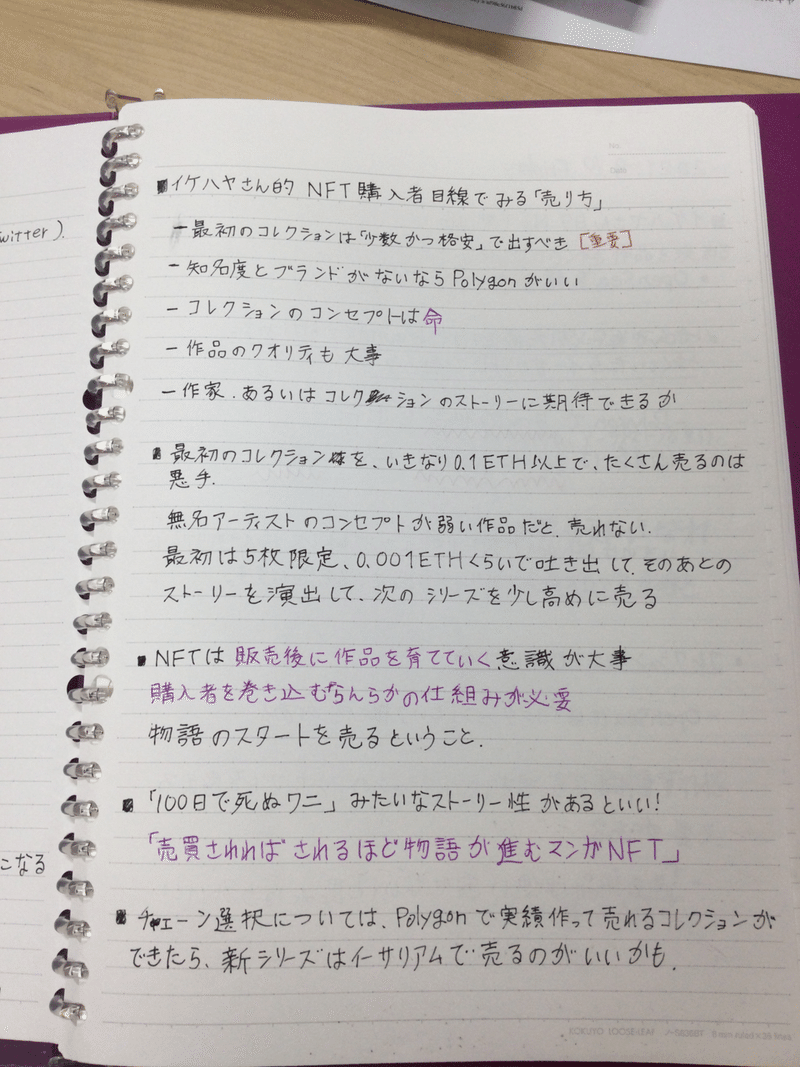 ■イケハヤさん的 NFT購入者目線でみる「売り方」
－最初のコレクションは「少数かつ格安」で出すべき [重要]
－知名度とブランドがないならPolygonがいい
－コレクションのコンセプトは命
－作品のクオリティも大事
－作家.あるいはコレクションのストーリーに期待できるか
■最初のコレクション体を、いきなり0.1ETH以上で、たくさん売るのは
悪手.
無名アーティストのコンセプトが弱い作品だと.売れない.
最初は5枚限定、0.001ETHくらいで吐き出して.そのあとの
ストーリーを演出して、次のシリーズを少し高めに売る
■NFTは販売後に作品を育てていく意識が大事
購入者を巻き込むなんらかの仕組みが必要
物語のスタートを売るということ.
■「100日で死ぬワニ」みたいなストーリー性があるといい!
「売買されればされるほど物語が進むマンガNFT」
■チェーン選択については、Polygonで実績作って売れるコレクションが
できたら、新シリーズはイーサリアムで売るのがいいかも.
witter).
こなる
No.
Date
KOKUYO LOOSE-LEAF